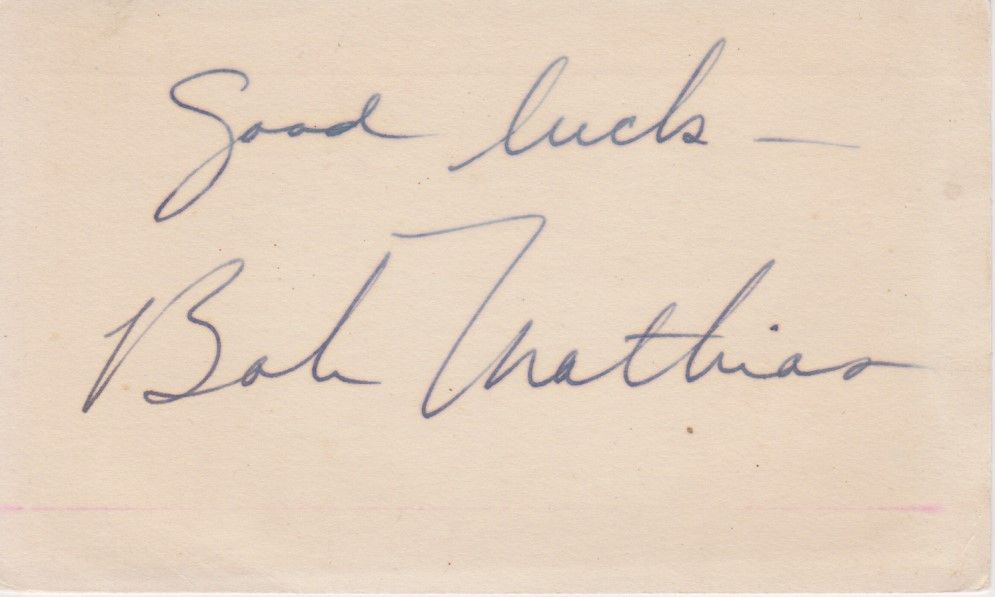 Good luck —
Bob Mathias